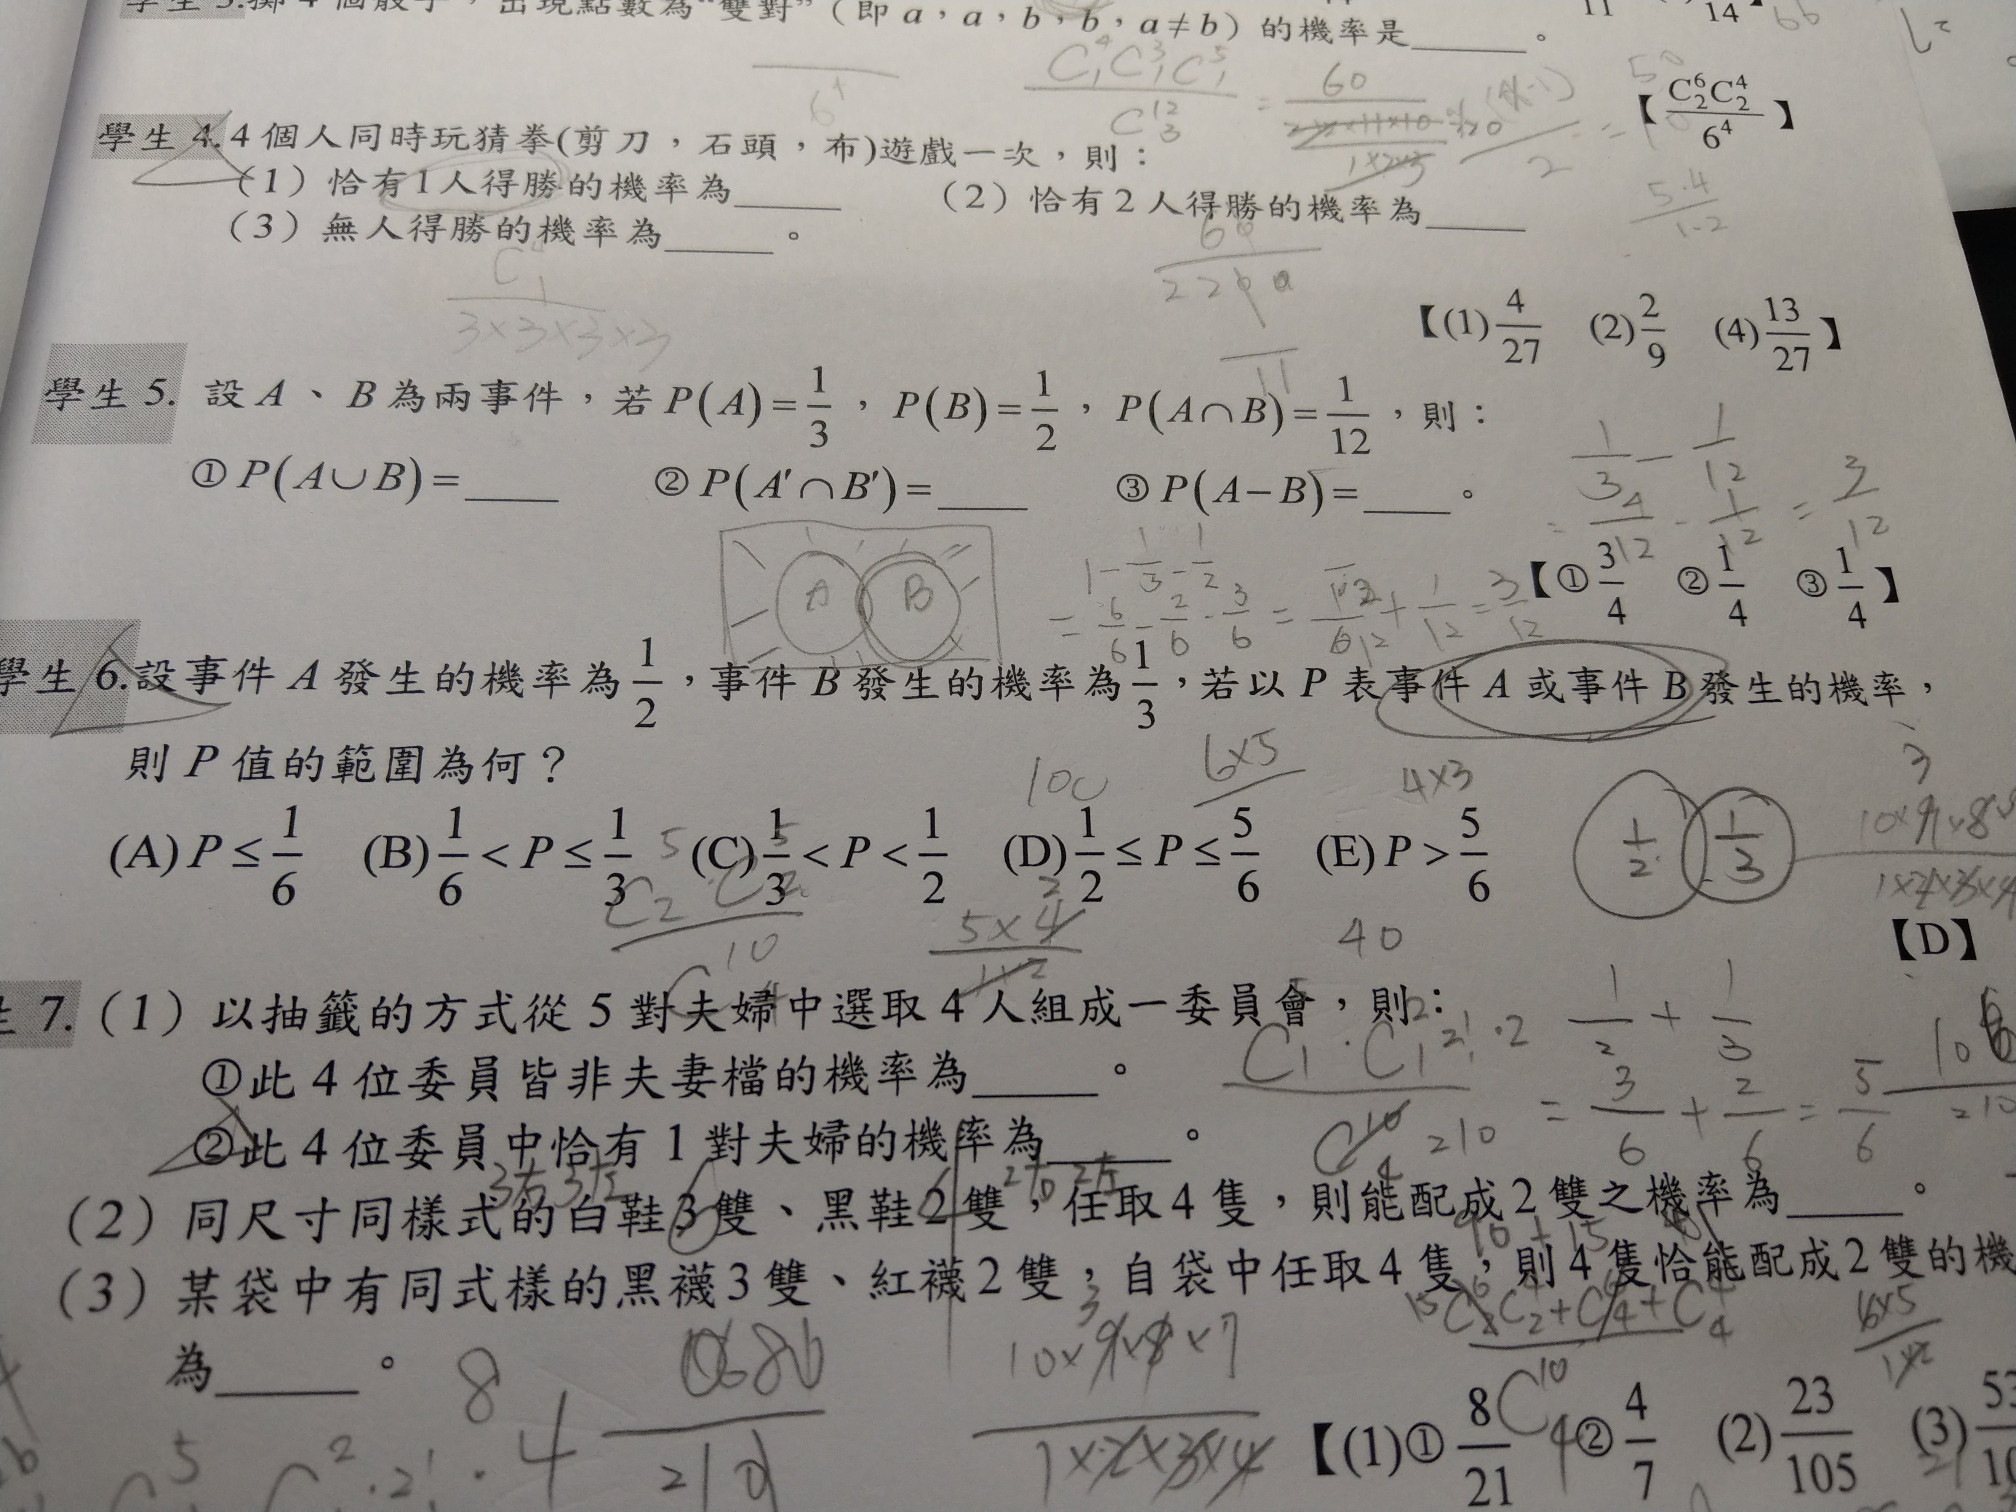 學生 3.擲 4 個骰子，出現點數為“雙對”（即 a，a，b，b，a≠b）的機率是______。
11 14
6⁴
C⁴₁C³₁C⁵₁ / C¹²₃ = 60
【C⁶₂C⁴₂ / 6⁴】
學生 4. 4 個人同時玩猜拳(剪刀，石頭，布)遊戲一次，則：
（1）恰有1人得勝的機率為______ （2）恰有 2 人得勝的機率為______
（3）無人得勝的機率為______。
5·4 / 1·2
C⁴₁ / 3×3×3×3
【(1) 4/27 (2) 2/9 (4) 13/27】
學生 5. 設 A、B 為兩事件，若 P(A)=1/3，P(B)=1/2，P(A∩B)=1/12，則：
① P(A∪B)=____ ② P(A′∩B′)=____ ③ P(A−B)=____。
1/3 − 1/12
= 4/12 − 1/12 = 3/12
A B
1 − 1/3 − 1/2
= 6/6 − 2/6 − 3/6 =
【① 3/4 ② 1/4 ③ 1/4】
學生 6.設事件 A 發生的機率為 1/2，事件 B 發生的機率為 1/3，若以 P 表事件 A 或事件 B 發生的機率，
則 P 值的範圍為何？
6×5
4×3
(A) P ≤ 1/6 (B) 1/6 < P ≤ 1/3 (C) 1/3 < P < 1/2 (D) 1/2 ≤ P ≤ 5/6 (E) P > 5/6
1/2 1/3
5×4 / 1×2
40
【D】
生 7.（1）以抽籤的方式從 5 對夫婦中選取 4 人組成一委員會，則：
①此 4 位委員皆非夫妻檔的機率為______。
②此 4 位委員中恰有 1 對夫婦的機率為______。
1/2 + 1/3
= 3/6 + 2/6 = 5/6
210
3右3左 2右2左
（2）同尺寸同樣式的白鞋 3 雙、黑鞋 2 雙，任取 4 隻，則能配成 2 雙之機率為______。
90+15
（3）某袋中有同式樣的黑襪 3 雙、紅襪 2 雙，自袋中任取 4 隻，則 4 隻恰能配成 2 雙的機
為______。
C⁶₂C⁴₂+C⁶₄+C⁴₄ / C¹⁰₄
6×5 / 1×2
10×9×8×7 / 1×2×3×4
8
【(1)① 8/21 ② 4/7 (2) 23/105 (3) 53